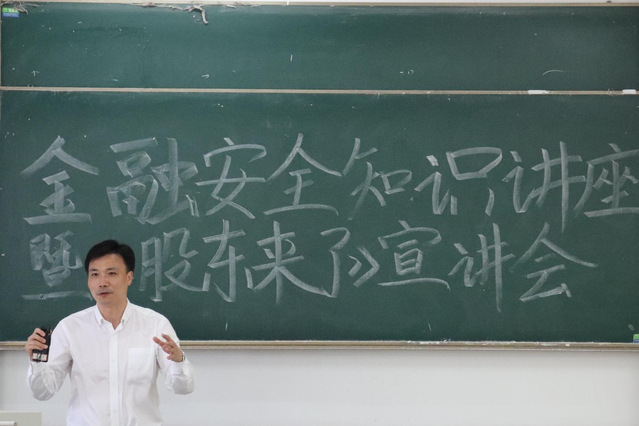 金融安全知识讲座
暨《股东来了》宣讲会